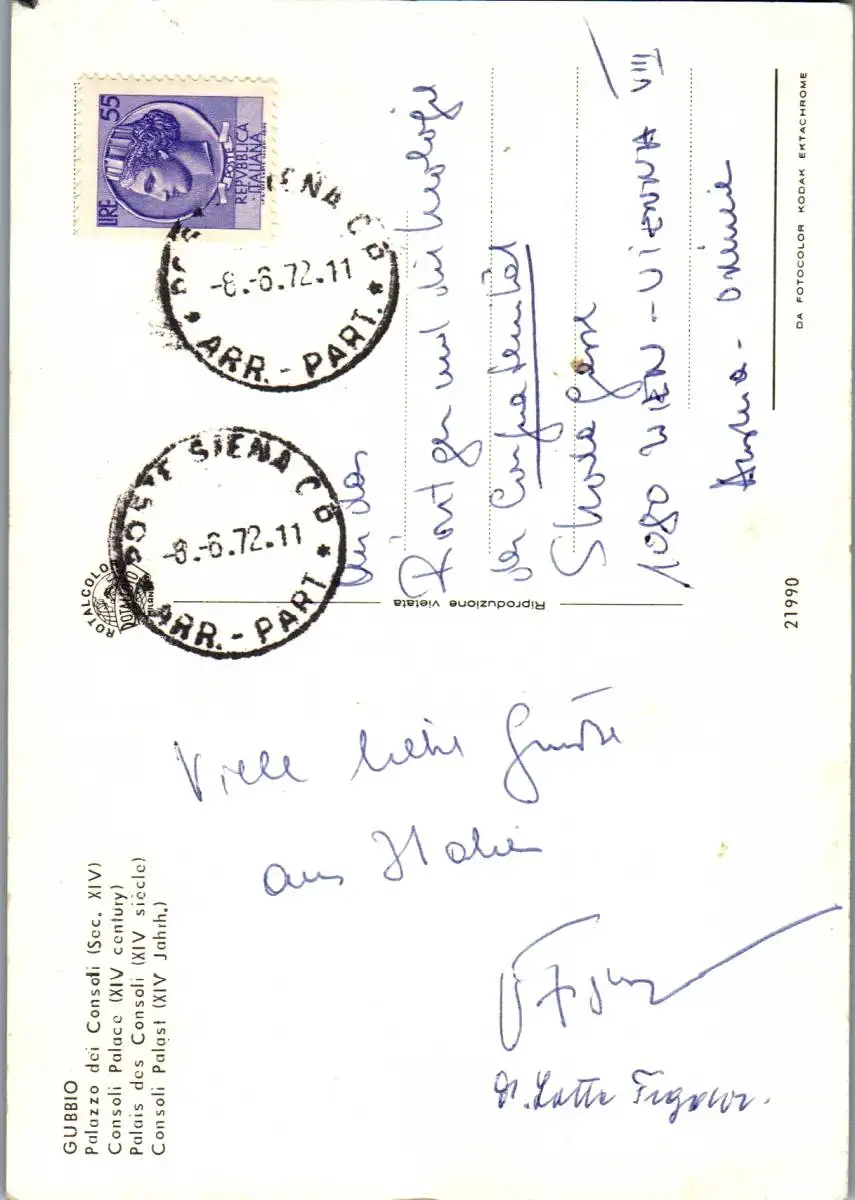 GUBBIO
Palazzo dei Consoli (Sec. XIV)
Consoli Palace (XIV century)
Palais des Consoli (XIV siècle)
Consoli Palast (XIV Jahrh.)
Viele liebe Grüße
aus Italien
Dr. Lotte
ROTALCOLOR
ROTALFOTO
MILANO
Riproduzione vietata
LIRE 55
POSTE
REPVBBLICA
ITALIANA
POSTE SIENA C P
-8.-6.72.11
* ARR. - PART. *
POSTE SIENA C P
-8.-6.72.11
* ARR. - PART *
An das
Röntgen und
der
Skoda Gasse
1080 WIEN - VIENNA VIII
Austria -
21990
DA FOTOCOLOR KODAK EKTACHROME